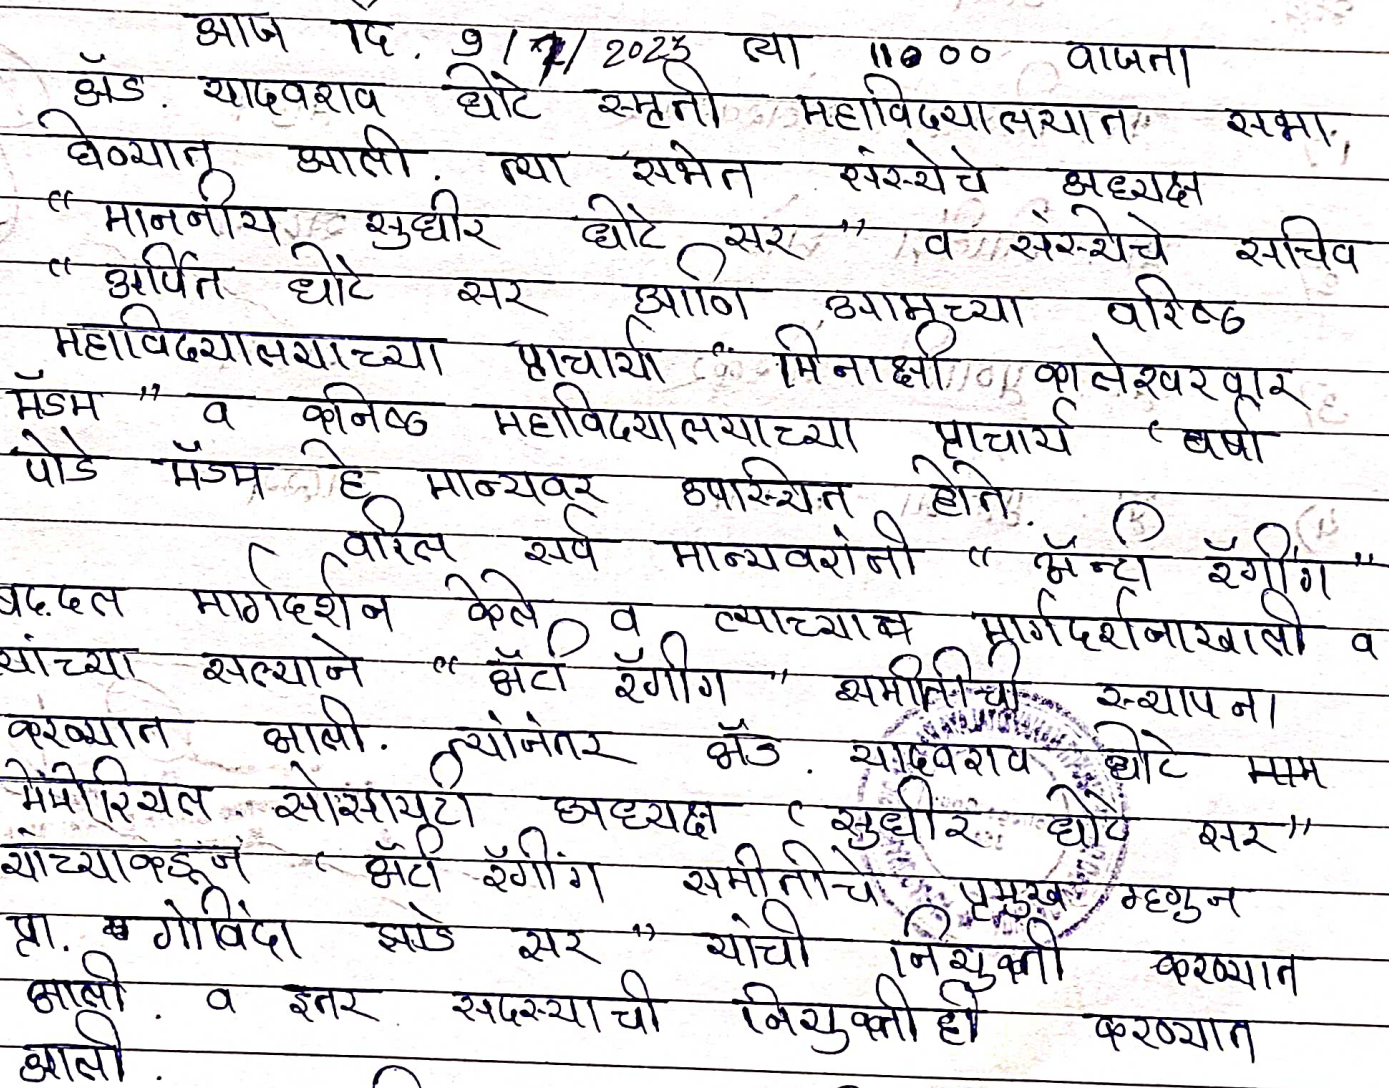 आज दि. 9/7/2023 ला 11000 वाजता
अॅड. यादवराव धोटे स्मृती महाविद्यालयात सभा
घेण्यात आली. त्या सभेत संस्थेचे अध्यक्ष
“ माननीय सुधीर धोटे सर ” व संस्थेचे सचिव
“ अर्पित धोटे सर आणि आमच्या वरिष्ठ
महाविद्यालयाच्या प्राचार्या “ मिनाक्षी कालेश्वरवार
मॅडम ” व कनिष्ठ महाविद्यालयाच्या प्राचार्य ‘ वर्षा
पोडे मॅडम हे मान्यवर उपस्थित होते.
वरिल सर्व मान्यवरांनी “ अॅन्टी रॅगींग ”
बद्दल मार्गदर्शन केले व त्याच्या मार्गदर्शनाखाली व
यांच्या सल्याने “ अॅटी रॅगींग ” समीतीची स्थापना
करण्यात आली. त्यांनंतर अॅड. यादवराव धोटे
मेमोरियल सोसायटी अध्यक्ष ‘ सुधीर धोटे सर ”
यांच्याकडून ‘ अॅटी रॅगींग समीतीचे प्रमुख म्हणुन
प्रा. गोविंदा झाडे सर ” यांची नियुक्ती करण्यात
आली. व इतर सदस्याची नियुक्तीही करण्यात
आली.